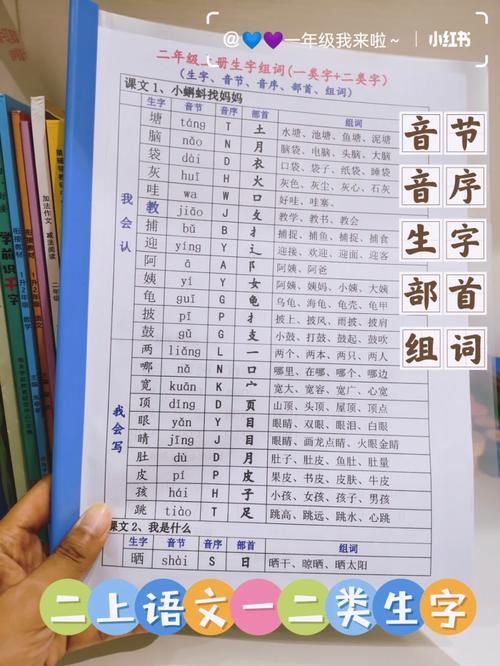 @💙💜一年级我来啦~ | 小红书
二年级上册生字组词(一类字+二类字)
(生字、音节、音序、部首、组词)
课文1、小蝌蚪找妈妈
生字 音节 音序 部首 组词
我会认
塘 táng T 土 水塘、池塘、鱼塘、泥塘
脑 nǎo N 月 脑袋、电脑、头脑、大脑
袋 dài D 衣 口袋、袋子、纸袋、睡袋
灰 huī H 火 灰色、灰尘、灰心、石灰
哇 wa W 口 好哇、哇塞
教 jiāo J 攵 教学、教书、教会
捕 bǔ B 扌 捕捉、捕鱼、捕捉、捕食
迎 yíng Y 辶 迎接、欢迎、迎面、迎客
阿 ā A 阝 阿姨、阿爸
姨 yí Y 女 阿姨、姨妈、小姨、大姨
龟 guī G 龟 乌龟、海龟、龟壳、龟甲
披 pī P 扌 披上、披风、雨披、披肩
鼓 gǔ G 支 小鼓、打鼓、鼓起、鼓吹
我会写
两 liǎng L 一 两个、两本、两只、两人
哪 nǎ N 口 哪里、在哪、哪个、哪边
宽 kuān K 宀 宽大、宽容、宽广、宽心
顶 dǐng D 页 山顶、头顶、屋顶、顶点
眼 yǎn Y 目 眼睛、双眼、眼泪、眼白
睛 jīng J 目 眼睛、画龙点睛、火眼金睛
肚 dù D 月 肚子、肚皮、鱼肚、肚量
皮 pí P 皮 果皮、书皮、皮肤、牛皮
孩 hái H 子 小孩、女孩、孩子、男孩
跳 tiào T 足 跳高、跳远、跳水、心跳
课文2、我是什么
生字 音节 音序 部首 组词
晒 shài S 日 晒干、晾晒、晒太阳
音节
音序
生字
部首
组词
加法作文 减法阅读
学前识字
二上语文一二类生字